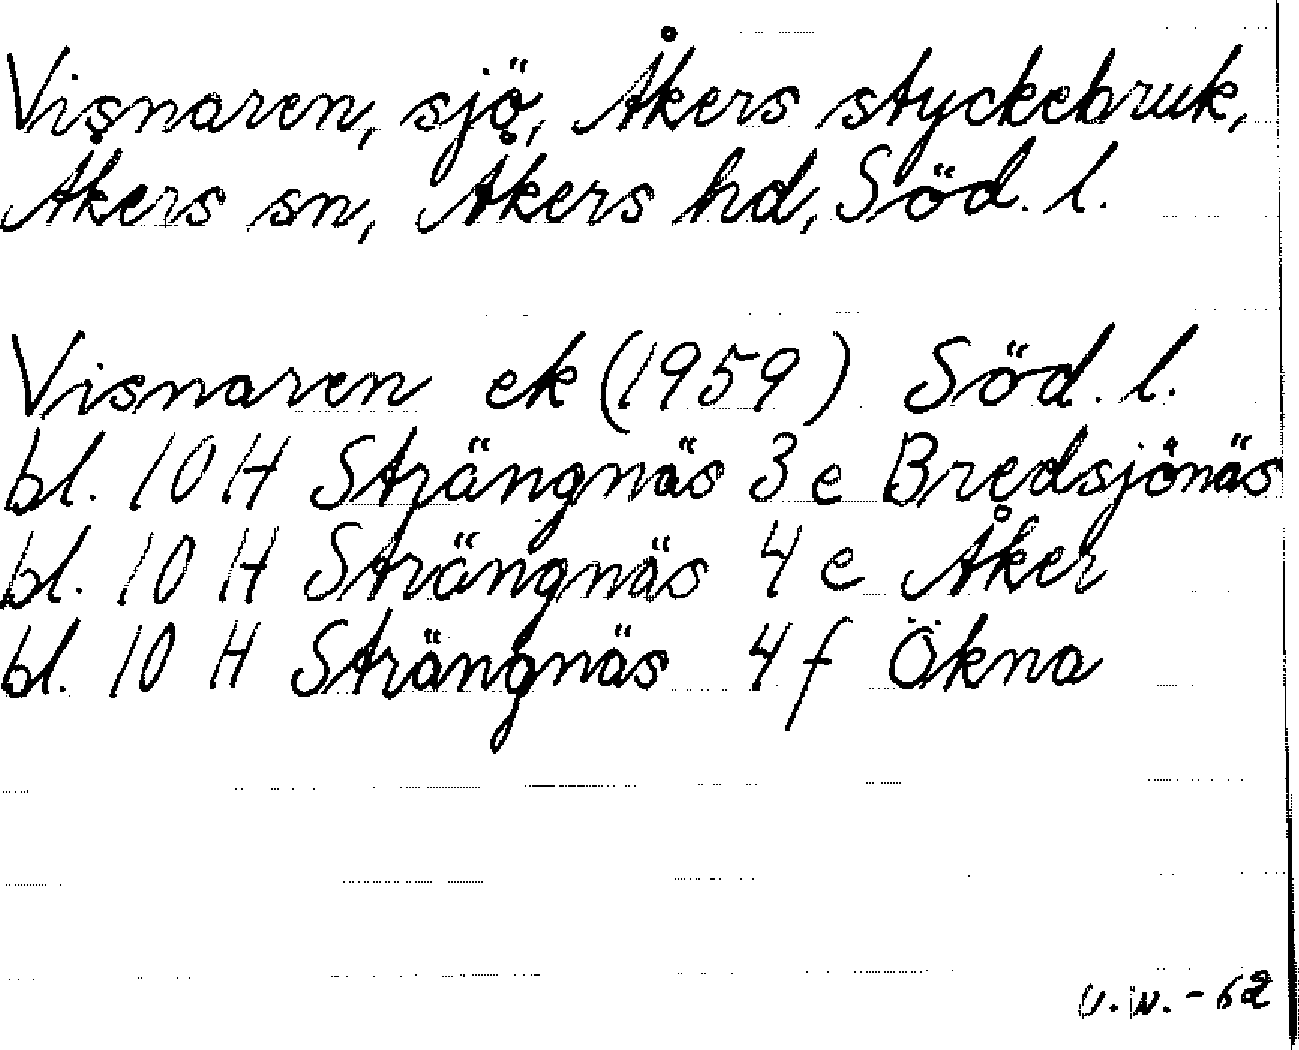 Visnaren, sjö, Åkers styckebruk,
Åkers sn, Åkers hd, Söd. l.
Visnaren ek (1959) Söd. l.
bl. 10 H Strängnäs 3 e Bredsjönäs
bl. 10 H Strängnäs 4 e Åker
bl. 10 H Strängnäs 4 f Ökna
U.W. - 62